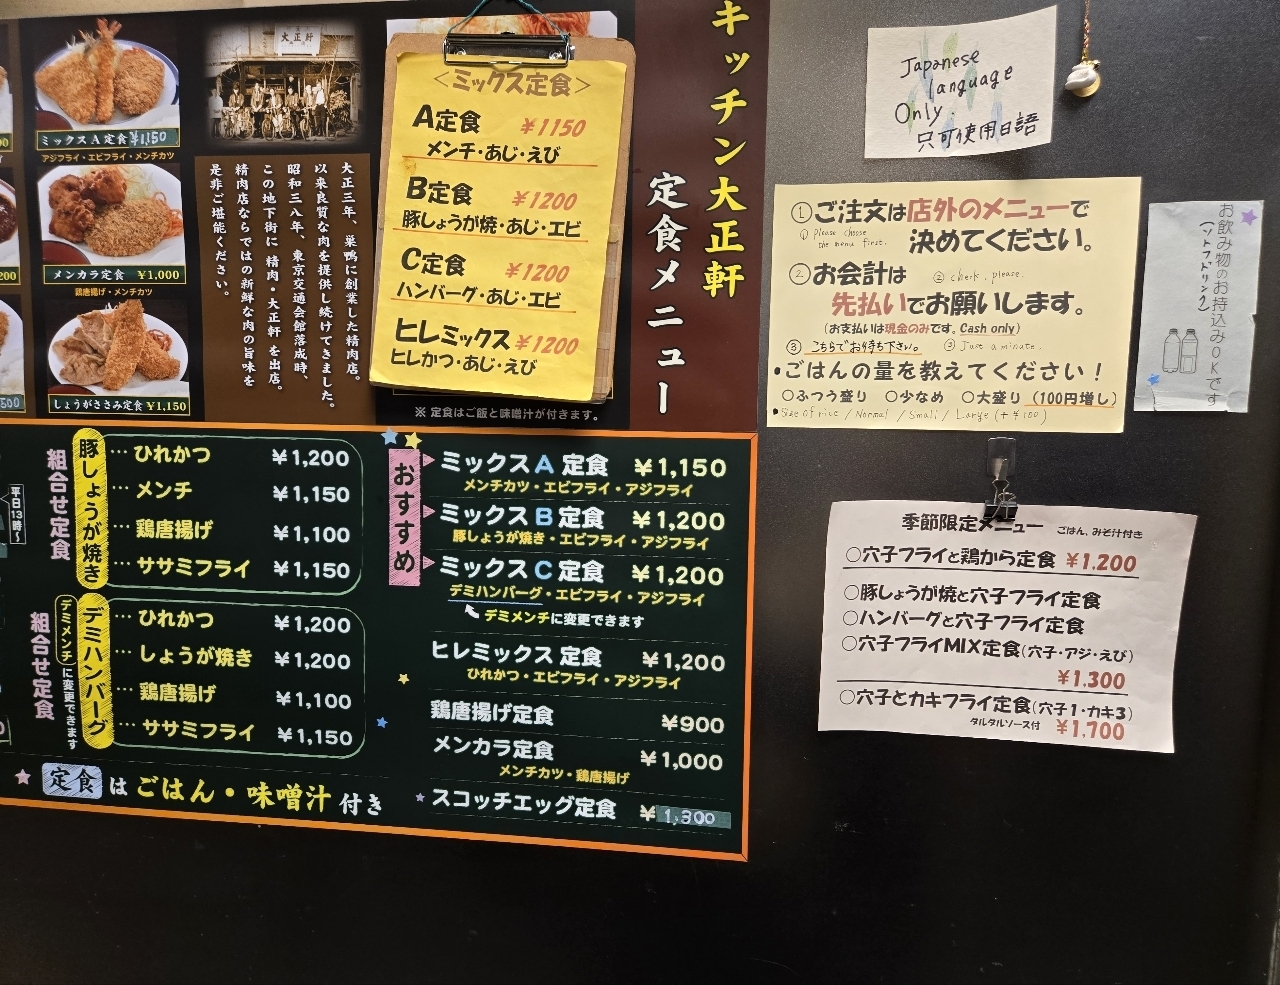 キッチン大正軒
定食メニュー
大正軒
ミックスA定食 ¥1,150
アジフライ・エビフライ・メンチカツ
メンカラ定食 ¥1,000
鶏唐揚げ・メンチカツ
しょうがささみ定食 ¥1,150
大正三年、巣鴨に創業した精肉店。
以来良質な肉を提供し続けてきました。
昭和三八年、東京交通会館落成時、
この地下街に 精肉・大正軒 を出店。
精肉店ならではの新鮮な肉の旨味を
是非ご堪能ください。
<ミックス定食>
A定食 ¥1150
メンチ・あじ・えび
B定食 ¥1200
豚しょうが焼・あじ・エビ
C定食 ¥1200
ハンバーグ・あじ・エビ
ヒレミックス ¥1200
ヒレかつ・あじ・えび
※ 定食はご飯と味噌汁が付きます。
平日13時〜
豚しょうが焼き
組合せ定食
… ひれかつ ¥1,200
… メンチ ¥1,150
… 鶏唐揚げ ¥1,100
… ササミフライ ¥1,150
デミハンバーグ
デミメンチに変更できます
組合せ定食
… ひれかつ ¥1,200
… しょうが焼き ¥1,200
… 鶏唐揚げ ¥1,100
… ササミフライ ¥1,150
定食はごはん・味噌汁付き
おすすめ
ミックスA定食 ¥1,150
メンチカツ・エビフライ・アジフライ
ミックスB定食 ¥1,200
豚しょうが焼き・エビフライ・アジフライ
ミックスC定食 ¥1,200
デミハンバーグ・エビフライ・アジフライ
デミメンチに変更できます
ヒレミックス定食 ¥1,200
ひれかつ・エビフライ・アジフライ
鶏唐揚げ定食 ¥900
メンカラ定食 ¥1,000
メンチカツ・鶏唐揚げ
スコッチエッグ定食 ¥1,300
Japanese
language
Only.
只可使用日語
①ご注文は店外のメニューで
① please choose
the menu first.
決めてください。
②お会計は ② check, please.
先払いでお願いします。
(お支払いは現金のみです。Cash only)
③ こちらでお待ち下さい。 ③ Just a minute.
・ごはんの量を教えてください!
○ふつう盛り ○少なめ ○大盛り(100円増し)
・Size of rice / Normal / Small / Large (+¥100)
お飲み物のお持込みOKです
(ソフトドリンク)
季節限定メニュー ごはん、みそ汁付き
○穴子フライと鶏から定食 ¥1.200
○豚しょうが焼と穴子フライ定食
○ハンバーグと穴子フライ定食
○穴子フライMIX定食(穴子・アジ・えび)
¥1.300
○穴子とカキフライ定食(穴子1・カキ3)
タルタルソース付 ¥1,700